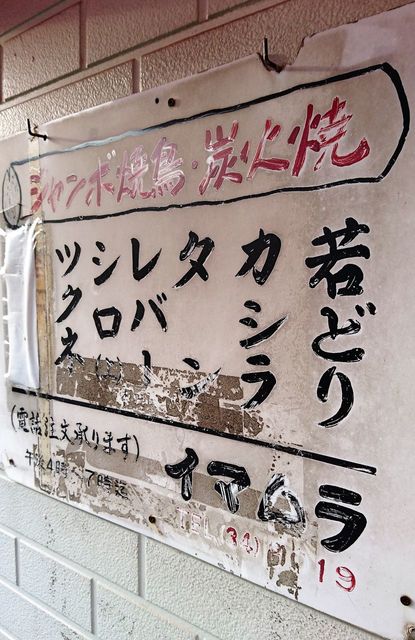 ジャンボ焼鳥・炭火焼
若どり
カシラ
タン
レバー
シロ
ツクネ
(電話注文承ります)
午後4時〜7時迄
イマムラ
TEL(34) 19